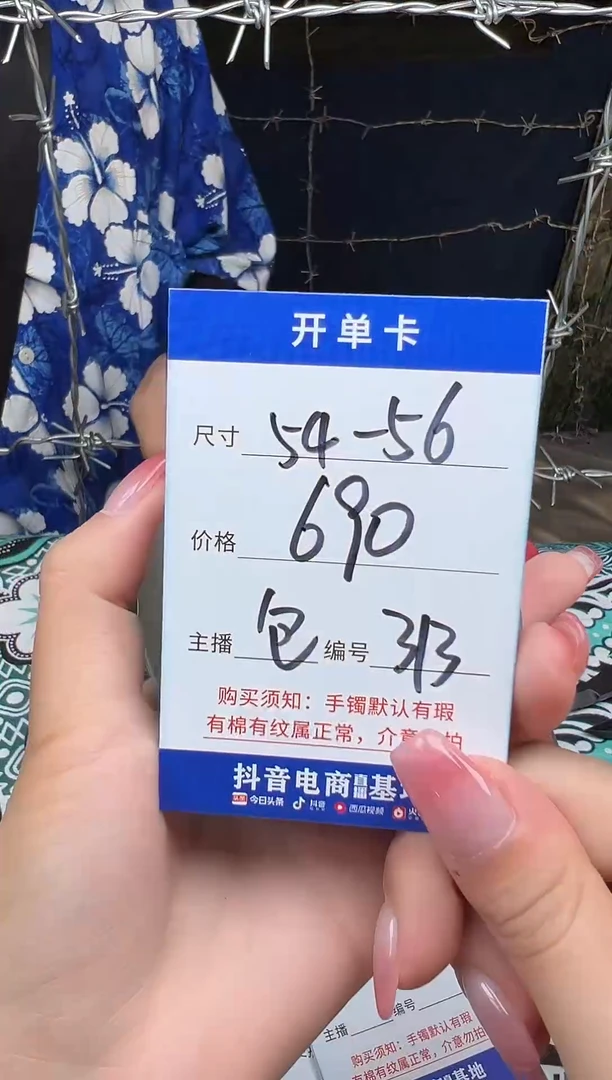 开单卡
尺寸 54-56
价格 690
主播 包 编号 313
购买须知：手镯默认有瑕
有棉有纹属正常，介意 拍
抖音电商直播基地
头条 今日头条 抖音 西瓜视频 火
主播 编号
购买须知：手镯默认有瑕
有棉有纹属正常，介意勿拍
基地